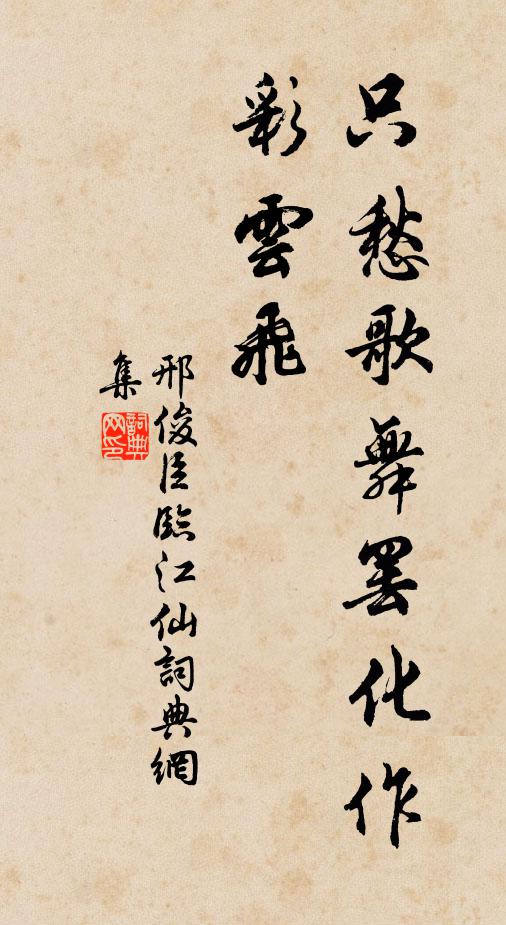 只愁歌舞罢化作
彩雲飛
邢俊臣臨江仙詞典網
集
詞典
网印